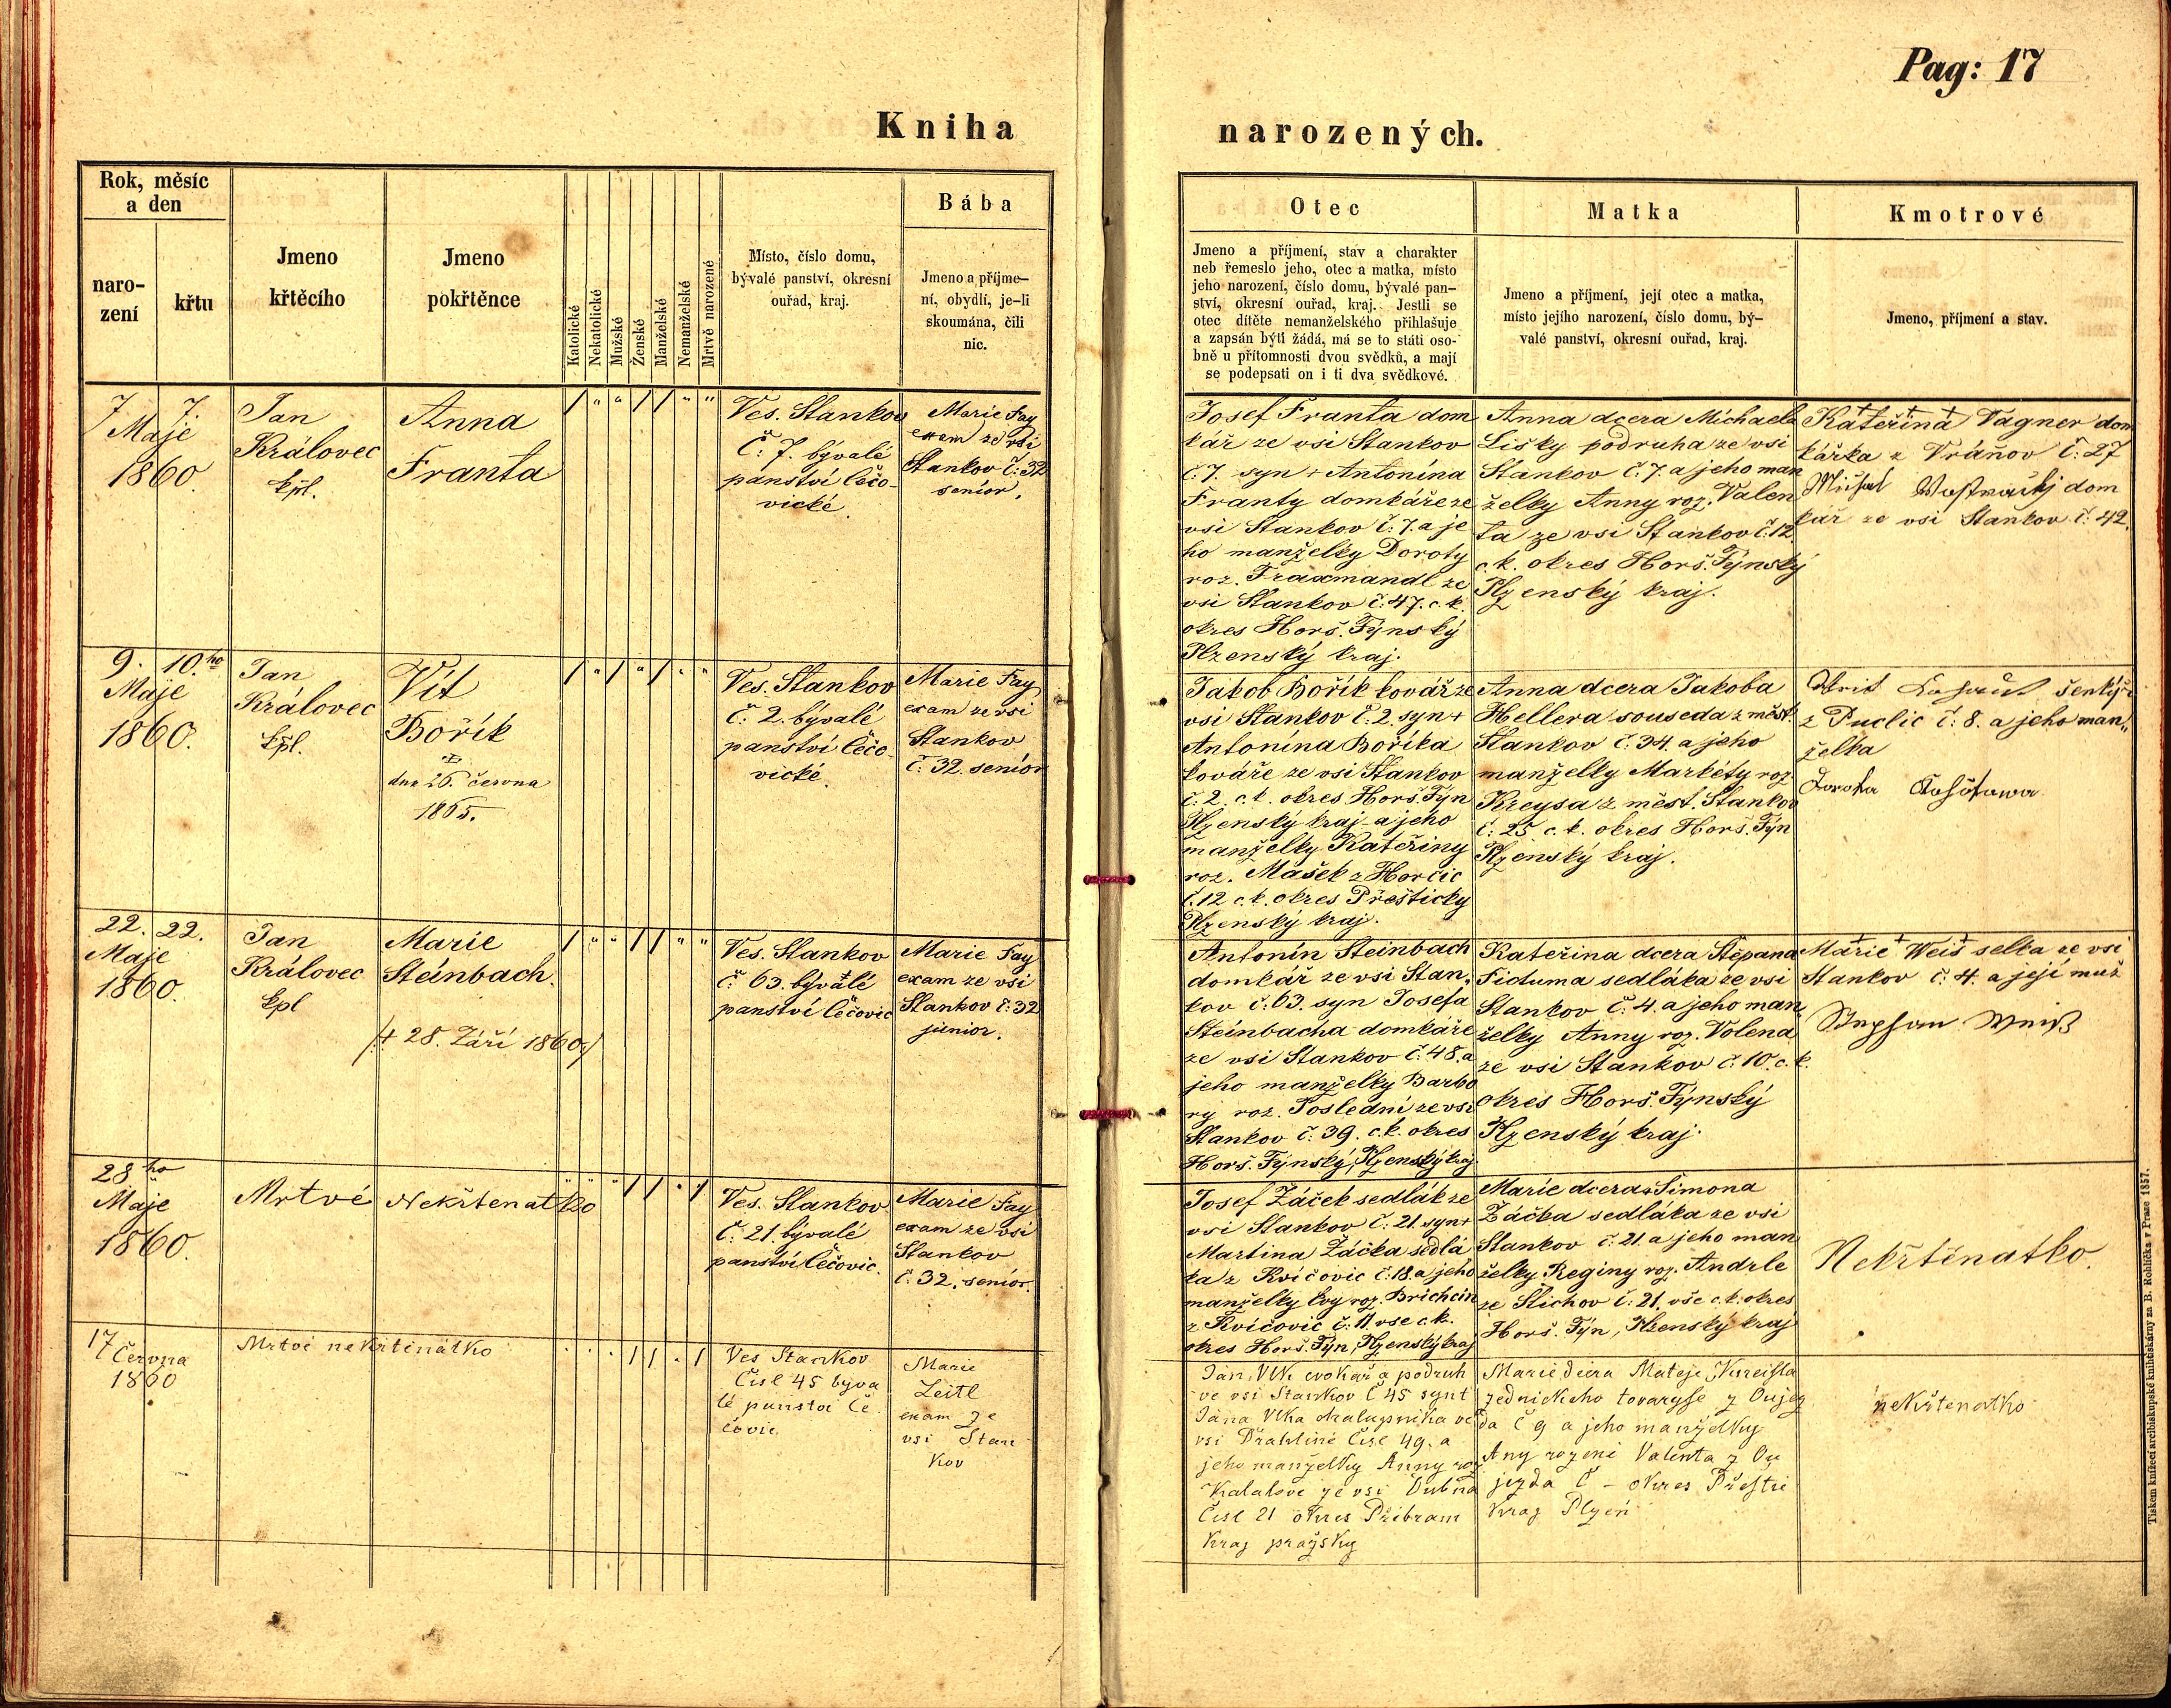 Pag: 17
Kniha narozených.
Rok, měsíc
a den
naro-
zení
křtu
Jmeno
křtěcího
Jmeno
pokřtěnce
Katolické
Nekatolické
Mužské
Ženské
Manželské
Nemanželské
Mrtvě narozené
Místo, číslo domu,
bývalé panství, okresní
ouřad, kraj.
Bába
Jmeno a příjme-
ní, obydlí, je-li
skoumána, čili
nic.
Otec
Jmeno a příjmení, stav a charakter
neb řemeslo jeho, otec a matka, místo
jeho narození, číslo domu, bývalé pan-
ství, okresní ouřad, kraj. Jestli se
otec dítěte nemanželského přihlašuje
a zapsán býti žádá, má se to státi oso-
bně u přítomnosti dvou svědků, a mají
se podepsati on i ti dva svědkové.
Matka
Jmeno a příjmení, její otec a matka,
místo jejího narození, číslo domu, bý-
valé panství, okresní ouřad, kraj.
Kmotrové
Jmeno, příjmení a stav.
7 7.
Maje
1860.
Jan
Královec
kpl.
Anna
Franta
/ " " / / " "
Ves. Stankov
Č: 7. bývalé
panství Čečo-
vické
Marie Fay
exam ze vsi
Stankov č: 32
senior.
Josef Franta dom
kář ze vsi Stankov
č: 7. syn + Antonína
Franty domkáře ze
vsi Stankov č: 7. a je
ho manželky Doroty
roz. Fraxmandl ze
vsi Stankov č: 47. c. k.
okres Horš. Týnský
Plzenský kraj.
Anna dcera Michaela
Lišky podruha ze vsi
Stankov č: 7. a jeho man
želky Anny roz. Valen
ta ze vsi Stankov č. 12.
c. k. okres Horš. Týnský
Plzenský kraj.
+ + +
Kateřina Vagner dom
kářka z Vránov č: 27
Michal dom
kář ze vsi Stankov č: 42.
9. 10.ho
Maje
1860.
Jan
Královec
kpl.
Vít
Bořík
dne 26. června
1865.
/ " / " / " "
Ves. Stankov
č: 2. bývalé
panství Čečo-
vické.
Marie Fay
exam ze vsi
Stankov
č: 32. senior
Jakob Bořík kovář ze
vsi Stankov č: 2. syn +
Antonína Boříka
kováře ze vsi Stankov
č: 2. c. k. okres Horš. Týn
Plzenský kraj a jeho
manželky Kateřiny
roz. Mašek z Horčic
č. 12 c. k. okres Přešticky
Plzenský kraj.
Anna dcera Jakoba
Hellera souseda z měst.
Stankov č: 34. a jeho
manželky Markéty roz.
Kreysa z měst. Stankov
č: 25 c. k. okres Horš. Týn
Plzenský kraj.
šenkýř
z Puclic č: 8. a jeho man„
želka
Dorota
22. 22.
Maje
1860.
Jan
Královec
kpl
Marie
Steinbach.
/+ 28. Září 1860./
/ " " / / " "
Ves. Stankov
č: 63. bývalé
panství Čečovic
Marie Fay
exam ze vsi
Stankov č: 32
junior.
Antonín Steinbach
domkář ze vsi Stan„
kov č: 63. syn Josefa
Steinbacha domkáře
ze vsi Stankov č: 48. a
jeho manželky Barbo
ry roz. Poslední ze vsi
Stankov č: 39. c. k. okres
Horš. Týnský, Plzenský kraj
Kateřina dcera Štěpana
Fiduma sedláka ze vsi
Stankov č: 4. a jeho man
želky Anny roz. Volena
ze vsi Stankov č: 10. c. k.
okres Horš. Týnský
Plzenský kraj.
+ + +
Marie Weis selka ze vsi
Stankov č: 4. a její muž
Stephan Weiß
28ho
Maje
1860.
Mrtvé
Nekřtenatko
" " " / / " /
Ves. Stankov
č: 21. bývalé
panství Čečovic.
Marie Fay
exam ze vsi
Stankov
č: 32. senior.
Josef Žáček sedlák ze
vsi Stankov č: 21. syn +
Martina Žáčka sedlá
ka z Kvičovic č: 18. a jeho
manželky Evy roz. Brichcin
z Kvíčovic č: 11. vse c. k.
okres Horš. Týn, Plzenský kraj
Marie dcera Šimona
Žáčka sedláka ze vsi
Stankov č: 21. a jeho man
želky Reginy roz. Andrle
ze Štichov č: 21. vše c. k. okres
Horš. Týn, Plzenský kraj
Nekřtěnatko.
17
Června
1860
Mrtvé nekřtěnátko
. . . / / . /
Ves Stankov
Čisl 45 býva
lé panství Če
čovic
Marie
Zeitl
exam ze
vsi Stan
kov
Jan Vlk cvokař a podruh
ve vsi Stankov Č 45 syn +
Jána Vlka chalupníka ve
vsi Drahlíně Čisl 49. a
jeho manzelky Anny roz
Kalalove ze vsi Dubna
Čisl 21 okres Přibram
kraj pražsky
Marie dcera Mateje Kreisla
zednickeho tovaryse z Oujez
da č 9 a jeho manželky
Any rozeni Valenta z Ou
jezda Č – okres Přešti
kraj Plzeń
neKřtenatko
Tiskem knížecí arcibiskupské knihtiskárny za B. Rohlíčka v Praze 1857.